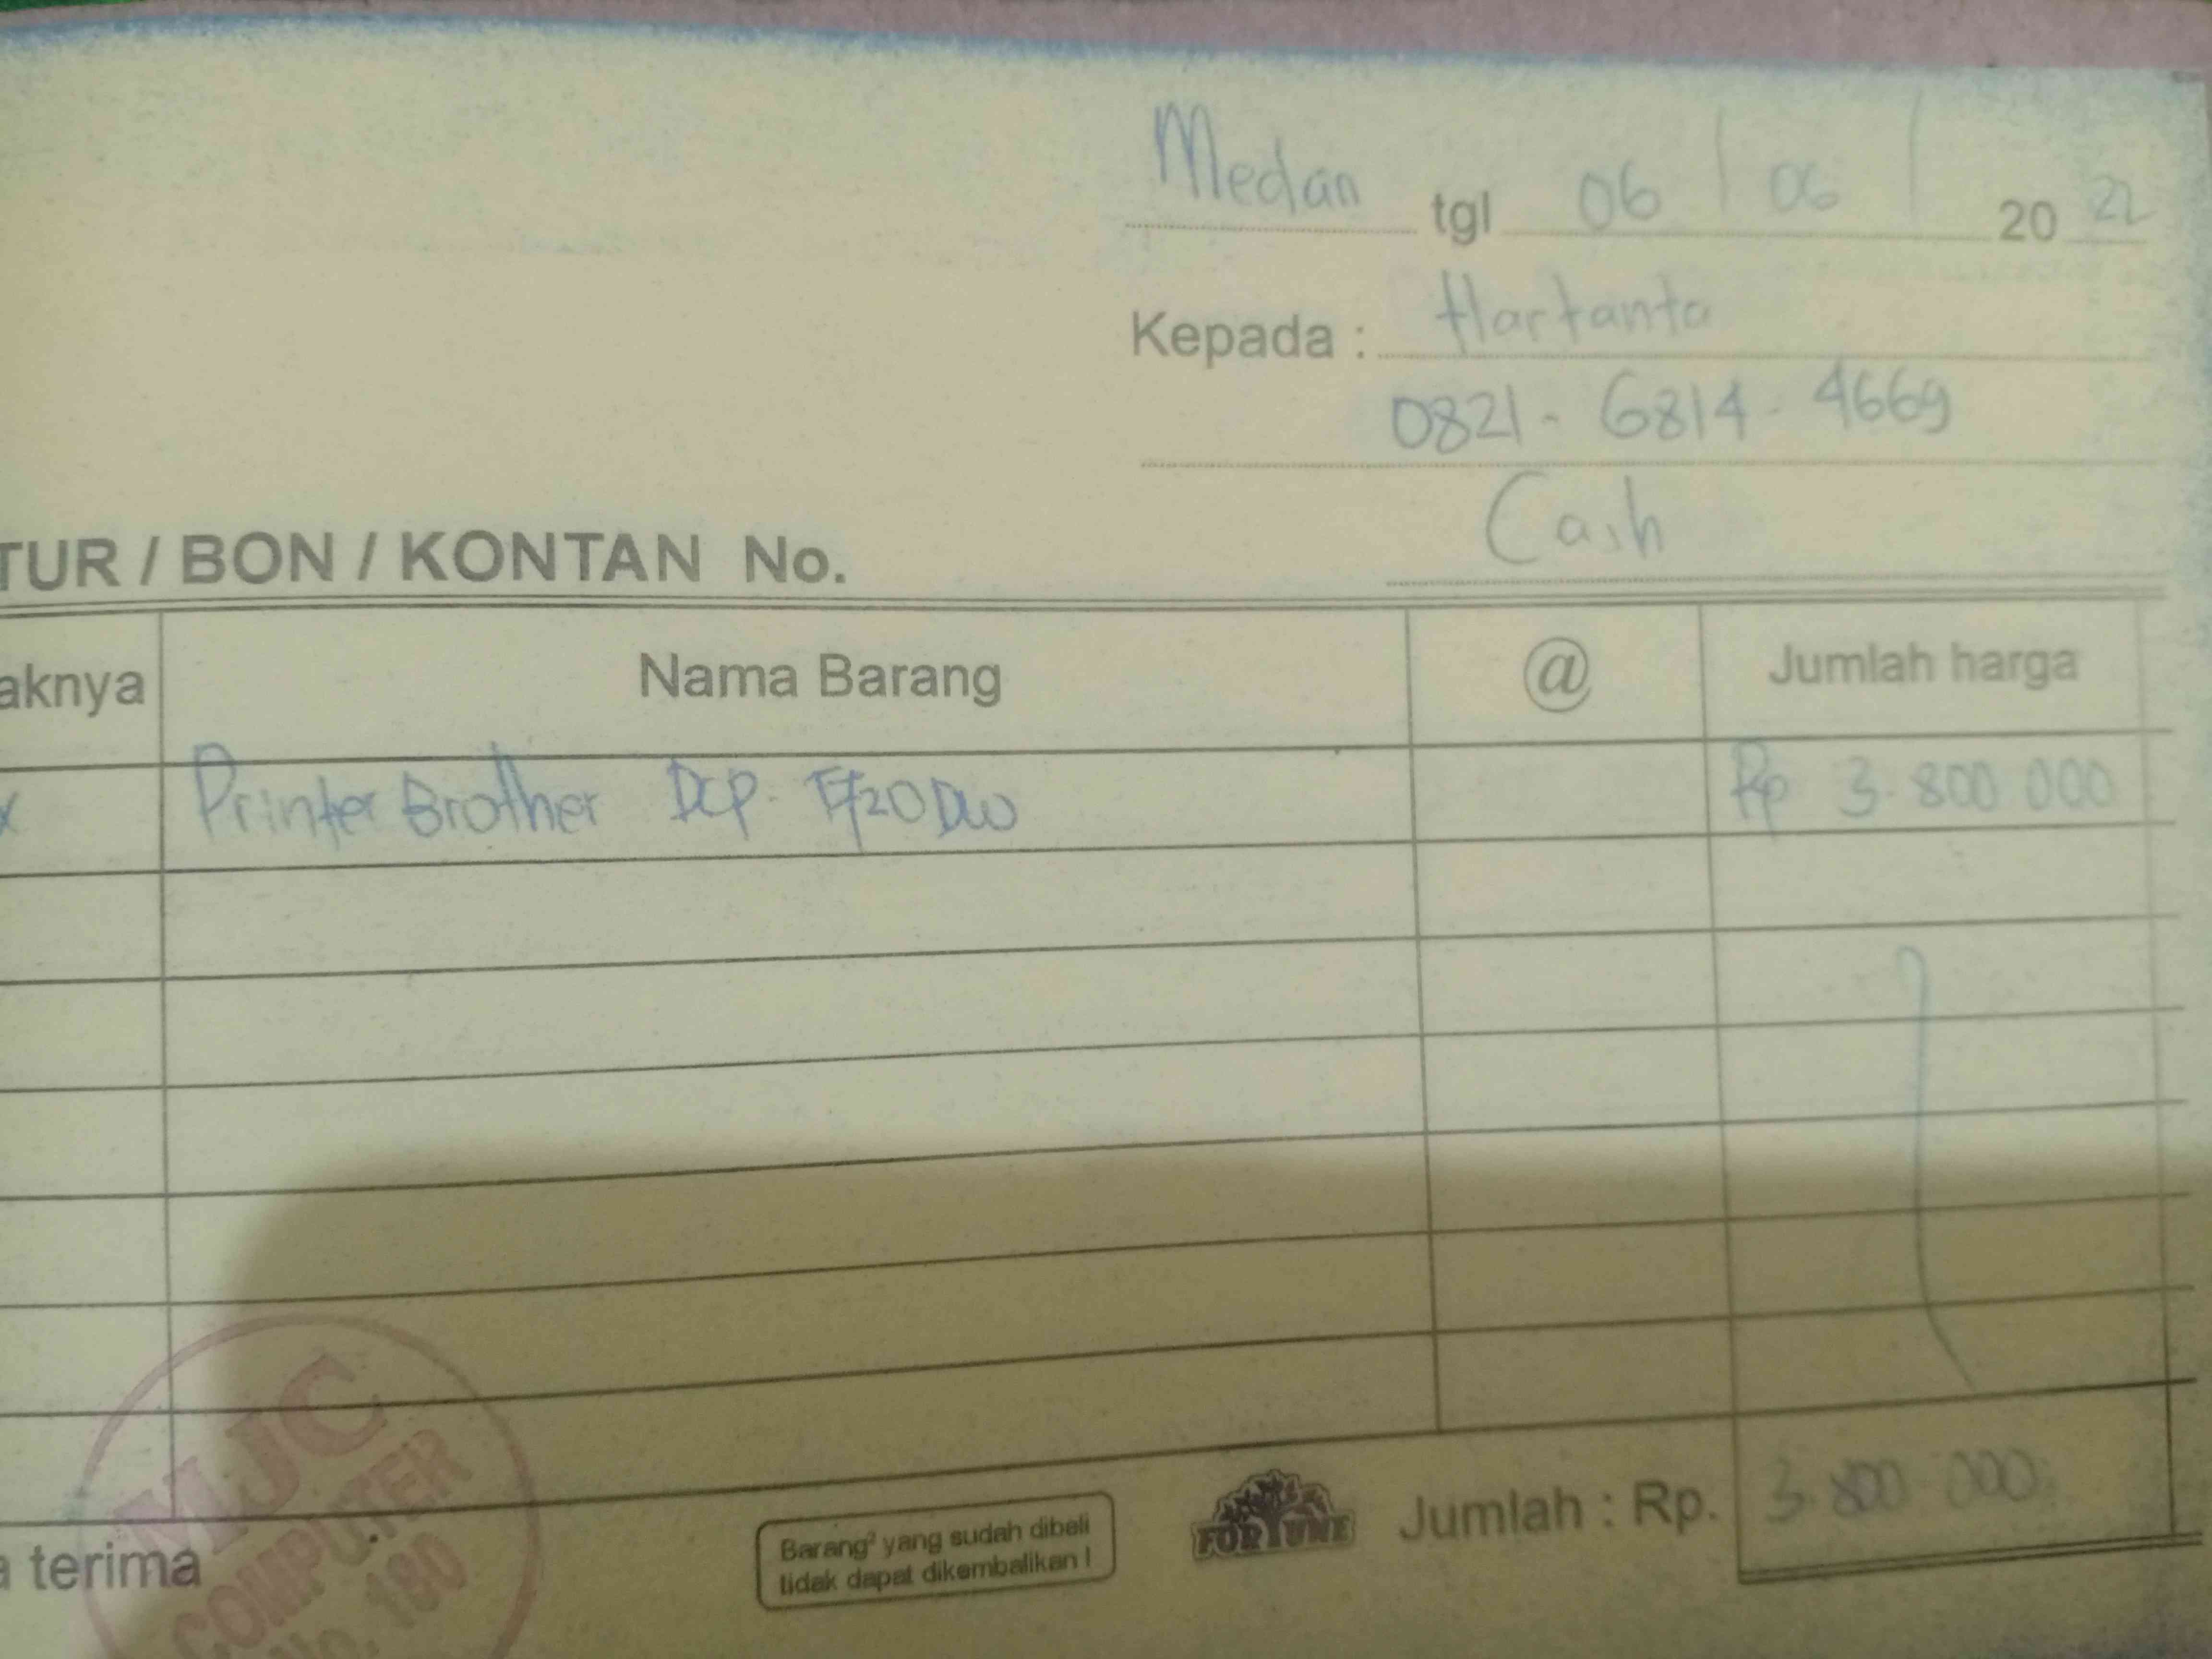 Medan tgl 06 / 06 / 20 22
Kepada : Hartanto
0821 - 6814 - 4669
Cash
TUR / BON / KONTAN No.
aknya Nama Barang @ Jumlah harga
x Printer Brother DCP - T720DW Rp 3.800.000
Jumlah : Rp. 3.800.000
FORTUNE
Barang² yang sudah dibeli
tidak dapat dikembalikan !
a terima
MJC
COMPUTER
No. 180